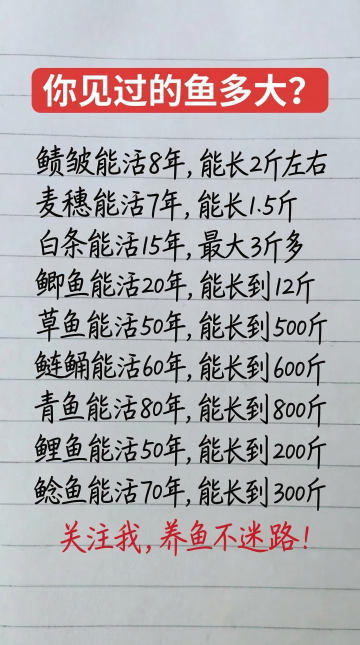 你见过的鱼多大？
鳑皱能活8年，能长2斤左右
麦穗能活7年，能长1.5斤
白条能活15年，最大3斤多
鲫鱼能活20年，能长到12斤
草鱼能活50年，能长到500斤
鲢鳙能活60年，能长到600斤
青鱼能活80年，能长到800斤
鲤鱼能活50年，能长到200斤
鲶鱼能活70年，能长到300斤
关注我，养鱼不迷路！